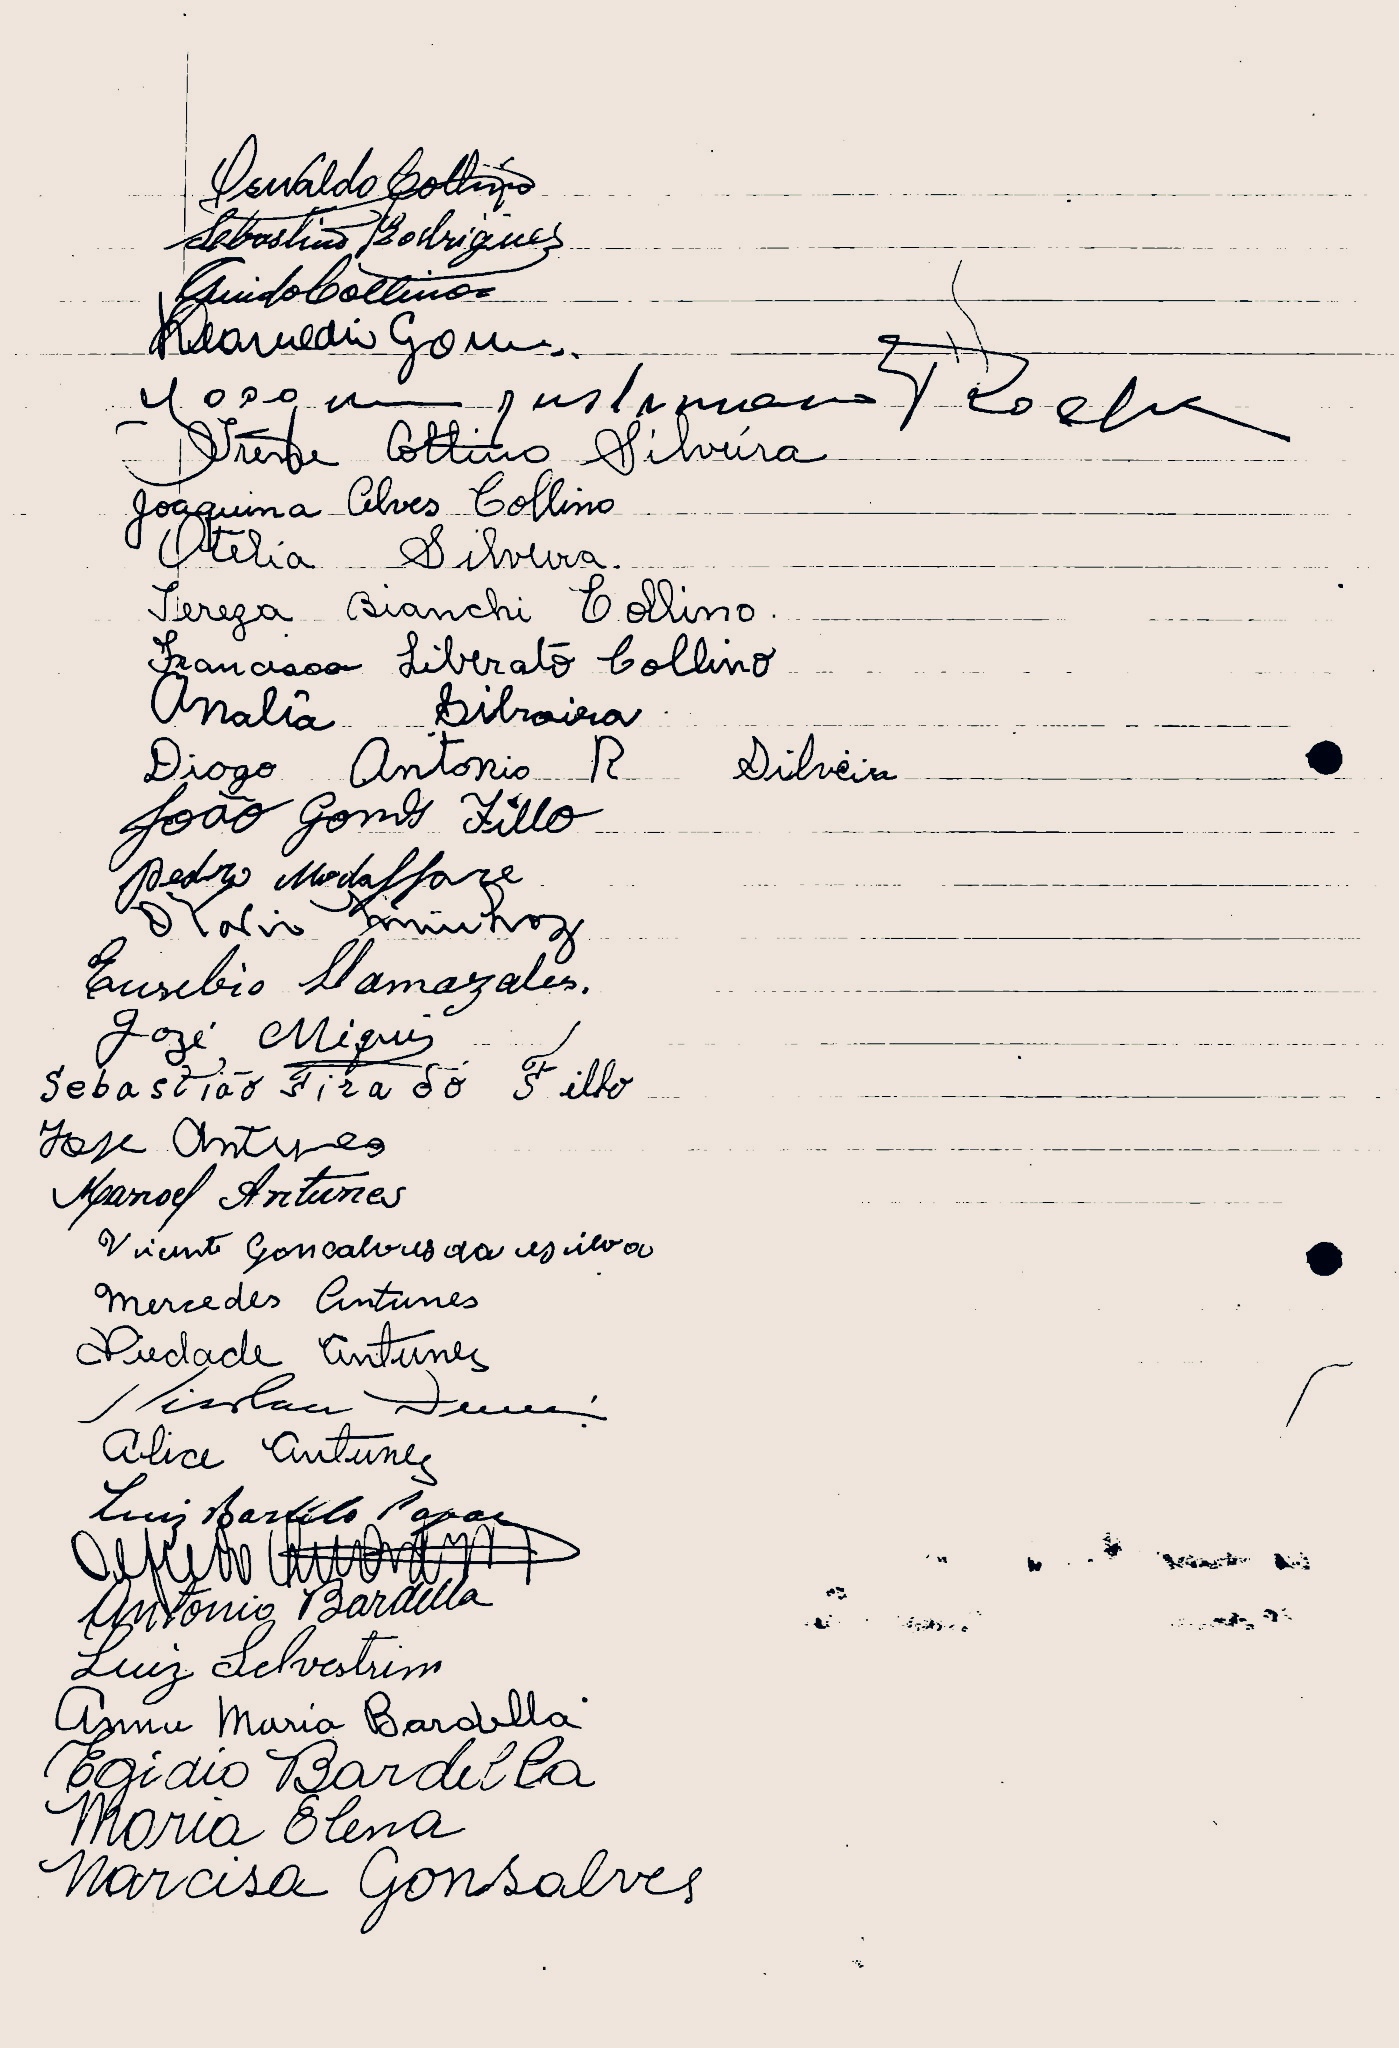 Osvaldo Collino
Sebastião Rodrigues
Guido Collino
Gomes
Yoaquim Justiniano Rocha
Irene Collino Silveira
Joaquina Alves Collino
Otelia Silveira.
Tereza Bianchi Collino.
Francisca Liberato Collino
Analia Silvaira
Diogo Antonio R Silveira
João Gomes Fillo
Pedro Modaffare
Munhoz
Eusebio Llamazales.
Jozé Miguis
Sebastião Tirado Filho
Jose Antunes
Manoel Antunes
Vicente Goncalves da Silva
Mercedes Antunes
Piedade Antunes
Nicolau
Alice Antunes
Luiz
Alfredo
Antonio Bardella
Luiz Selvestrim
Anna Maria Bardella
Egidio Bardella
Maria Elena
Narcisa Gonsalves